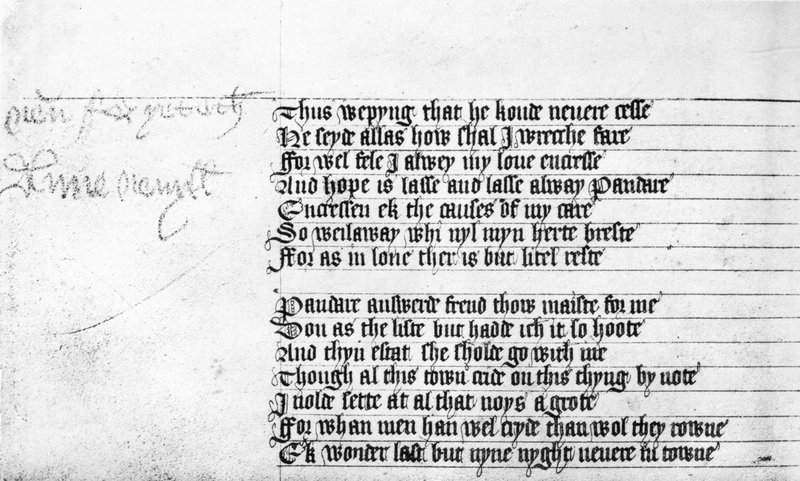 neuer foryeteth
Anne neuyll
Thus wepyng that he koude neuere cesse
He seyde allas how shal I wrecche fare
Ffor wel fele I alwey my loue encresse
And hope is lasse and lasse alway Pandare
Encressen ek the causes of my care
So weilaway whi nyl myn herte breste
Ffor as in loue ther is but litel reste
Pandare answerde frend thow maiste for me
Don as the liste but hadde ich it so hoote
And thyn estat she sholde go with me
Though al this town cride on this thyng by note
I nolde sette at al that noys a grote
Ffor whan men han wel cryde than wol they rowne
Ek wonder last but nyne nyght neuere in towne